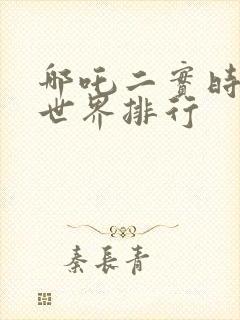 哪吒二實時
世界排行
秦長青